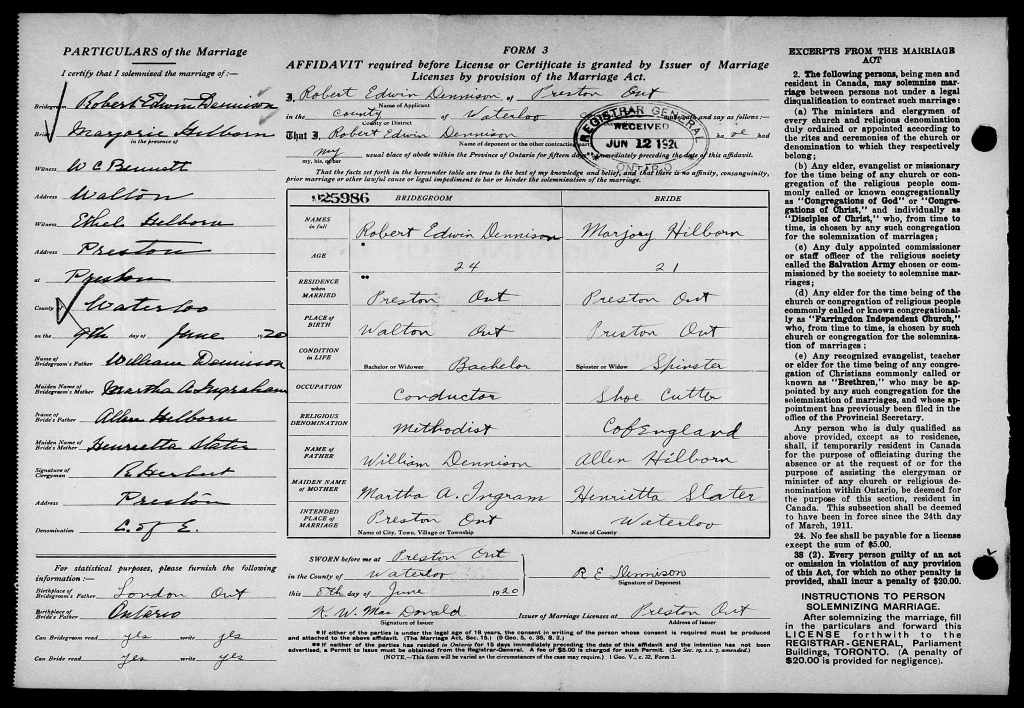 PARTICULARS of the Marriage
I certify that I solemnized the marriage of:—
Bridegroom Robert Edwin Dennison
Bride Marjorie Hilborn
in the presence of
Witness W C Bennett
Address Walton
Witness Ethel Hilborn
Address Preston
at Preston
County Waterloo
on the 9th day of June 1920
Name of Bridegroom's Father William Dennison
Maiden Name of Bridegroom's Mother Martha A. Ingraham
Name of Bride's Father Allen Hilborn
Maiden Name of Bride's Mother Henrietta Slater
Signature of Clergyman R. Herbert
Address Preston
Denomination C. of E.
For statistical purposes, please furnish the following
information:—
Birthplace of Bridegroom's Father London Ont
Birthplace of Bride's Father Ontario
Can Bridegroom read yes write yes
Can Bride read yes write yes
FORM 3
AFFIDAVIT required before License or Certificate is granted by Issuer of Marriage
Licenses by provision of the Marriage Act.
I, Robert Edwin Dennison of Preston Ont
Name of Applicant
in the County of Waterloo make oath and say as follows:—
County or District
REGISTRAR GENERAL
RECEIVED
JUN 12 1920
ONTARIO
That I, Robert Edwin Dennison
Name of deponent or the other contracting party
had
my usual place of abode within the Province of Ontario for fifteen days** immediately preceding the date of this affidavit.
my, his, or her
That the facts set forth in the hereunder table are true to the best of my knowledge and belief, and that there is no affinity, consanguinity,
prior marriage or other lawful cause or legal impediment to bar or hinder the solemnization of the marriage.
25986 BRIDEGROOM BRIDE
NAMES in full Robert Edwin Dennison Marjory Hilborn
AGE * 24 21
RESIDENCE when MARRIED ** Preston Ont Preston Ont
PLACE of BIRTH Walton Ont Preston Ont
CONDITION in LIFE Bachelor or Widower Bachelor Spinster or Widow Spinster
OCCUPATION Conductor Shoe Cutter
RELIGIOUS DENOMINATION Methodist C of England
NAME of FATHER William Dennison Allen Hilborn
MAIDEN NAME of MOTHER Martha A. Ingram Henrietta Slater
INTENDED PLACE of MARRIAGE Preston Ont Waterloo
Name of City, Town, Village or Township Name of County
SWORN before me at Preston Ont
in the County of Waterloo
this 8th day of June 1920
R E Dennison
Signature of Deponent
K. W. MacDonald Issuer of Marriage Licenses at Preston Ont
Signature of Issuer Address of Issuer
*If either of the parties is under the legal age of 18 years, the consent in writing of the person whose consent is required must be produced
and attached to the above affidavit. (The Marriage Act, Sec. 15.) (9 Geo. 5, c. 35, S. 2.)
**If neither of the parties has resided in Ontario for 15 days immediately preceding the date of this affidavit and the intention has not been
advertised, a Permit to Issue must be obtained from the Registrar-General. A fee of $5.00 is charged for such Permit. (See Sec. 19. s.s. 2, amended.)
(NOTE.—This form will be varied as the circumstances of the case may require.) 1 Geo. V., c. 32, Form 3.
EXCERPTS FROM THE MARRIAGE
ACT
2. The following persons, being men and
resident in Canada, may solemnize mar-
riage between persons not under a legal
disqualification to contract such marriage:
(a) The ministers and clergymen of
every church and religious denomination
duly ordained or appointed according to
the rites and ceremonies of the church or
denomination to which they respectively
belong;
(b) Any elder, evangelist or missionary
for the time being of any church or con-
gregation of the religious people com-
monly called or known congregationally
as "Congregations of God" or "Congre-
gations of Christ," and individually as
"Disciples of Christ," who, from time to
time, is chosen by any such congregation
for the solemnization of marriages;
(c) Any duly appointed commissioner
or staff officer of the religious society
called the Salvation Army chosen or com-
missioned by the society to solemnise mar-
riages;
(d) Any elder for the time being of the
church or congregation of religious people
commonly called or known congregational-
ly as "Farringdon Independent Church,"
who, from time to time, is chosen by such
church or congregation for the solemniza-
tion of marriages;
(e) Any recognized evangelist, teacher
or elder for the time being of any congre-
gation of Christians commonly called or
known as "Brethren," who may be ap-
pointed by any such congregation for the
solemnization of marriages, and whose ap-
pointment has previously been filed in the
office of the Provincial Secretary.
Any person who is duly qualified as
above provided, except as to residense,
shall, if temporarily resident in Canada
for the purpose of officiating during the
absence or at the request of or for the
purpose of assisting the clergyman or
minister of any church or religious de-
nomination within Ontario, be deemed for
the purpose of this section, resident in
Canada. This subsection shall be deemed
to have been in force since the 24th day
of March, 1911.
24. No fee shall be payable for a license
except the sum of $5.00.
38 (2). Every person guilty of an act
or omission in violation of any provision
of this Act, for which no other penalty is
provided, shall incur a penalty of $20.00.
INSTRUCTIONS TO PERSON
SOLEMNIZING MARRIAGE.
After solemnizing the marriage, fill
in the particulars and forward this
LICENSE forthwith to the
REGISTRAR-GENERAL, Parliament
Buildings, TORONTO. (A penalty of
$20.00 is provided for negligence).